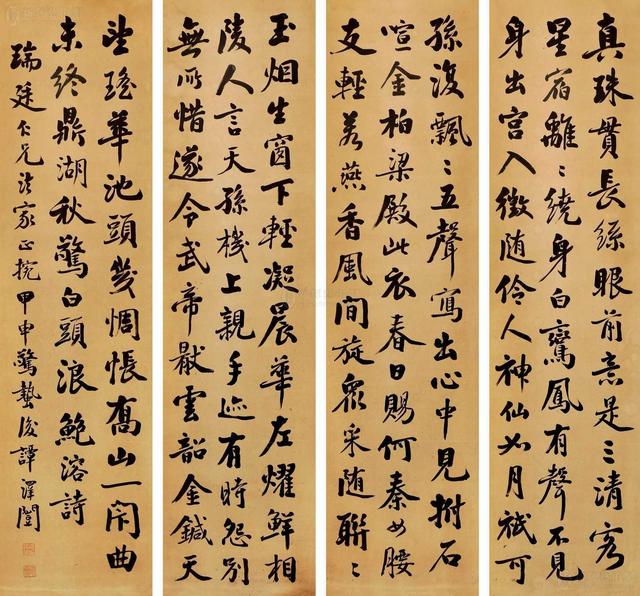 真珠貫長絲眼前意是三清客
星宿離〻繞身白鸞鳳有聲不見
身出宮入徵随伶人神仙如月祇可
孫復飄〻五聲寫出心中見拊石
喧金柏梁殿此衣春日賜何秦女腰
支輕若燕香風間旋眾采随聯〻
玉烟生窗下輕凝晨華左耀鮮相
陵人言天孫機上親手迹有時怨別
無所惜遂令武帝厭雲韶金鍼天
望瑤華池頭幾惆悵喬山一閉曲
未終鼎湖秋驚白頭浪鮑溶詩
瑞廷仁兄法家正捥甲申驚蟄後譚澤闓